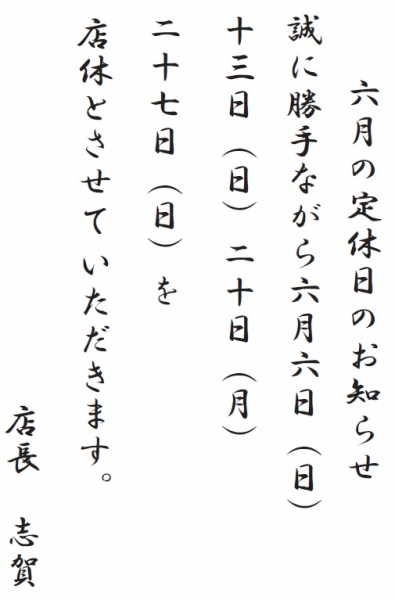 六月の定休日のお知らせ
誠に勝手ながら六月六日（日）
十三日（日）二十日（月）
二十七日（日）を
店休とさせていただきます。
店長　志賀